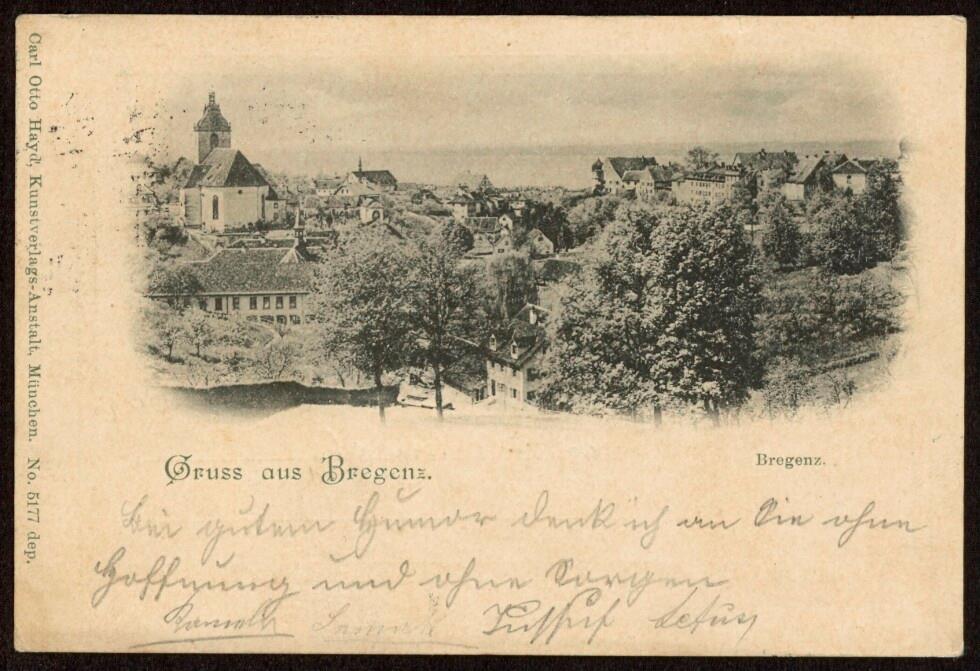 Carl Otto Hayd', Kunstverlags-Anstalt, München. No. 5177 dep.
Gruss aus Bregenz.
Bregenz.
Bei gutem Humor denk ich an Sie ohne
Hoffnung und ohne Sorgen